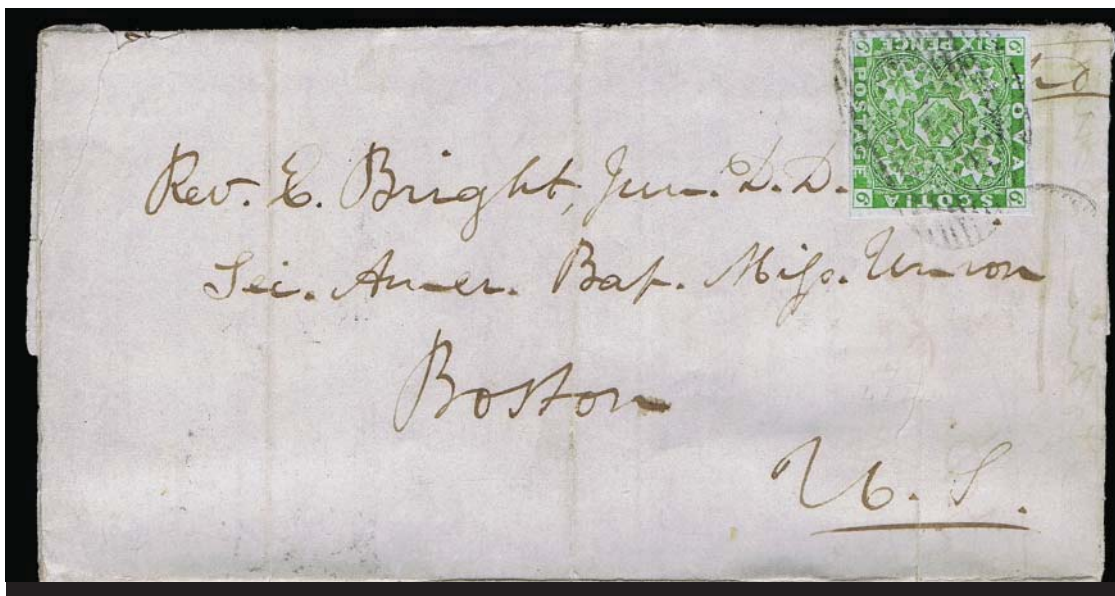 SIX PENCE
NOVA
POSTAGE
SCOTIA
6 6 6 6
Rev. E. Bright, Jun. D. D.
Sec. Amer. Bap. Miss. Union
Boston
U. S.